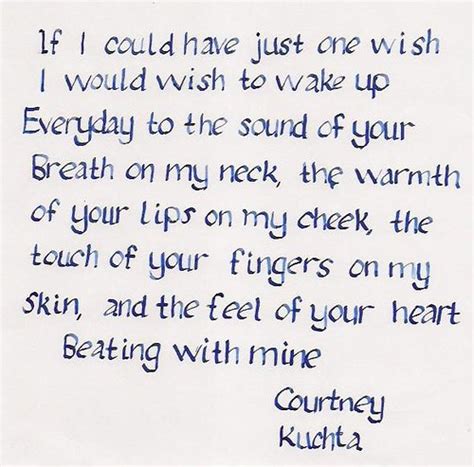 If I could have just one wish
I would wish to wake up
Everyday to the sound of your
Breath on my neck, the warmth
of your lips on my cheek, the
touch of your fingers on my
skin, and the feel of your heart
Beating with mine
Courtney
Kuchta